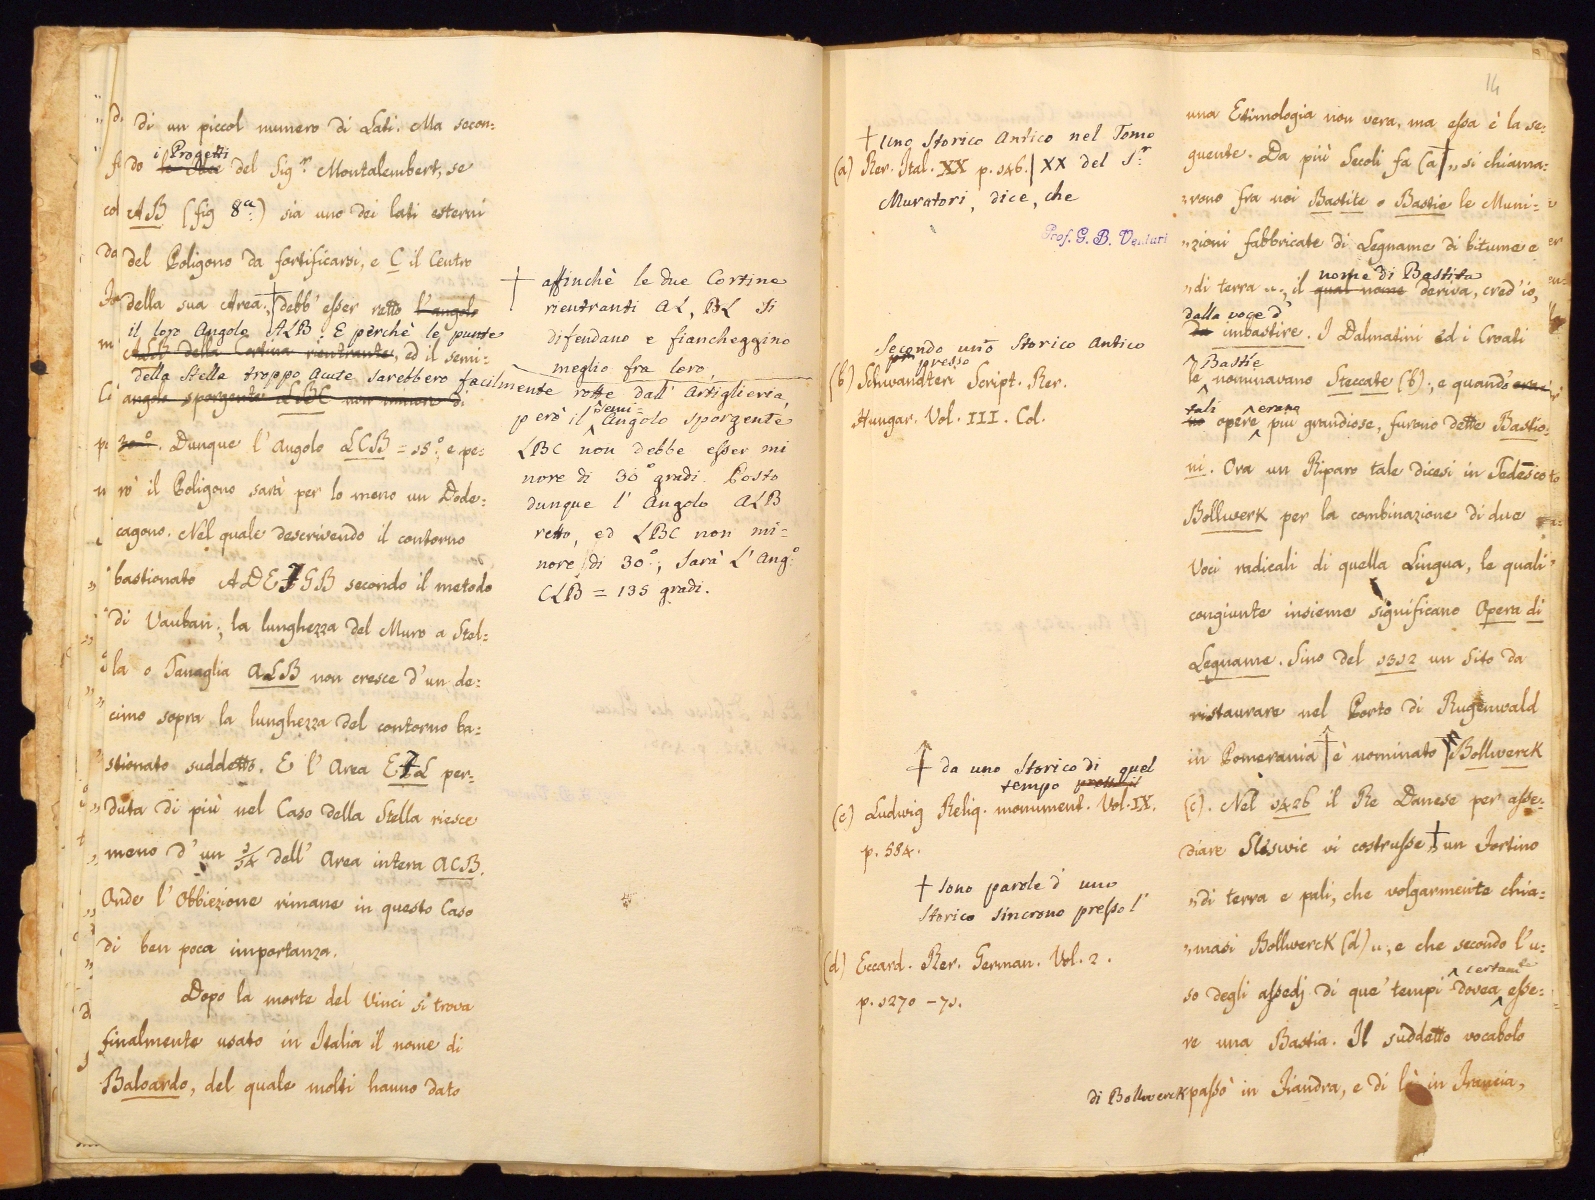 di un piccol numero di Lati. Ma secon=
i Progetti
do le Idee del Sig.r Montalembert, se
AB (fig 8a.) sia uno dei lati esterni
del Poligono da fortificarsi, e C il Centro
della sua Area, † debb' esser retto l'angolo
il loro Angolo ALB. E perchè le punte
ALB della Cortina rientrante, ed il semi=
della Stella troppo acute sarebbero facil
angolo sporgente LBC non minor di
30°. Dunque l'Angolo LCB = 15°, e pe=
rò il Poligono sarà per lo meno un Dode=
cagono. Nel quale descrivendo il contorno
bastionato ADEFGB secondo il metodo
di Vauban; la lunghezza del Muro a Stel=
la o Tanaglia ALB non cresce d'un de=
cimo sopra la lunghezza del contorno ba=
stionato suddetto. E l'Area EFL per=
duta di più nel Caso della Stella riesce
meno d'un dell' Area intera ACB.
Onde l'Obbiezione rimane in questo Caso
di ben poca importanza.
Dopo la morte del Vinci si trova
finalmente usato in Italia il nome di
Baloardo, del quale molti hanno dato
† affinchè le due Cortine
rientranti AL, BL si
difendano e fiancheggino
meglio fra loro,
mente rotte dall' Artiglieria,
però il semi= Angolo sporgente
LBC non debbe esser mi
nore di 30° gradi. Posto
dunque l'Angolo ALB
retto, ed LBC non mi=
nore di 30°, sarà l'Ang.°
CLB = 135 gradi.
14
† Uno Storico Antico nel Tomo
(a) Rer. Ital. XX p. 546. | XX del S.r
Muratori, dice, che
Prof. G. B. Venturi
Secondo uno Storico Antico
presso
(b) Schwandteri Script. Rer.
Hungar. Vol. III. Col.
† da uno Storico di quel
tempo
(c) Ludwig Reliq. monument. Vol. IX.
p. 584.
† sono parole d'uno
Storico sincrono presso l'
(d) Eccard. Rer. German. Vol. 2.
p. 1270 - 71.
una Etimologia non vera, ma essa è la se=
guente. Da più Secoli fa (a) † „ si chiama=
„rono fra noi Bastite o Bastie le Muni=
„zioni fabbricate di Legname di bitume e
nome di Bastita
„di terra „; il qual nome deriva, cred'io,
dalla voce d'
da imbastire. I Dalmatini ed i Croati
Bastie
le nominavano Steccate (b); e quand'
tali erano
opere più grandiose, furono dette Bastio=
ni. Ora un Riparo tale dicesi in Tedesco
Bollwerk per la combinazione di due
Voci radicali di quella Lingua, le quali
congiunte insieme significano Opera di
Legname. Sino del 1312 un sito da
ristaurare nel Porto di Rugenwald
in Pomerania † è nominato Bollwerck
(c). Nel 1426 il Re Danese per asse=
diare Sleswic vi costrusse † „ un Fortino
„di terra e pali, che volgarmente chia=
„masi Bollwerck (d) „; e che secondo l'u=
certam.te
so degli assedj di que' tempi dovea esse=
re una Bastia. Il suddetto vocabolo
di Bollwerck passò in Fiandra, e di là in Francia,